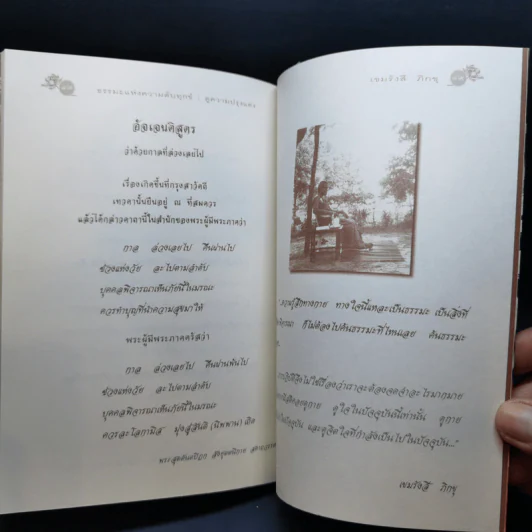 ธรรมะแห่งความดับทุกข์ : สู่ความปรุงแต่ง
อัจเจนติสูตร
ว่าด้วยกาลที่ล่วงเลยไป
เรื่องเกิดขึ้นที่กรุงสาวัตถี
เทวดานั้นยืนอยู่ ณ ที่สมควร
แล้วได้กล่าวคาถานี้ในสำนักของพระผู้มีพระภาคว่า
กาล ล่วงเลยไป คืนผ่านไป
ช่วงแห่งวัย ละไปตามลำดับ
บุคคลพิจารณาเห็นภัยนี้ในมรณะ
ควรทำบุญที่นำความสุขมาให้
พระผู้มีพระภาคตรัสว่า
กาล ล่วงเลยไป คืนผ่านพ้นไป
ช่วงแห่งวัย ละไปตามลำดับ
บุคคลพิจารณาเห็นภัยนี้ในมรณะ
ควรละโลกามิส มุ่งสู่สันติ (นิพพาน) เถิด
พระสุตตันตปิฎก สังยุตตนิกาย
เขมรังสี ภิกขุ
รู้สึกทางกาย ทางใจนี่แหละเป็นธรรมะ เป็นสิ่งที่
ก็ไม่ต้องไปค้นธรรมะที่ไหนเลย ค้นธรรมะ
ไม่ใช่เรื่องว่าเราจะต้องจดจำอะไรมากมาย
คอยดูกาย ดูใจในปัจจุบันนี้เท่านั้น ดูกาย
ในปัจจุบัน และดูจิตใจที่กำลังเป็นไปในปัจจุบัน..."
เขมรังสี ภิกขุ